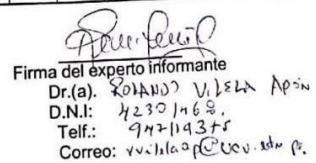 Firma del experto informante
Dr.(a). ROLANDO VILELA APÓN
D.N.I: 42301468.
Telf.:
Correo: vvilelaap@ucv.edu.pe.